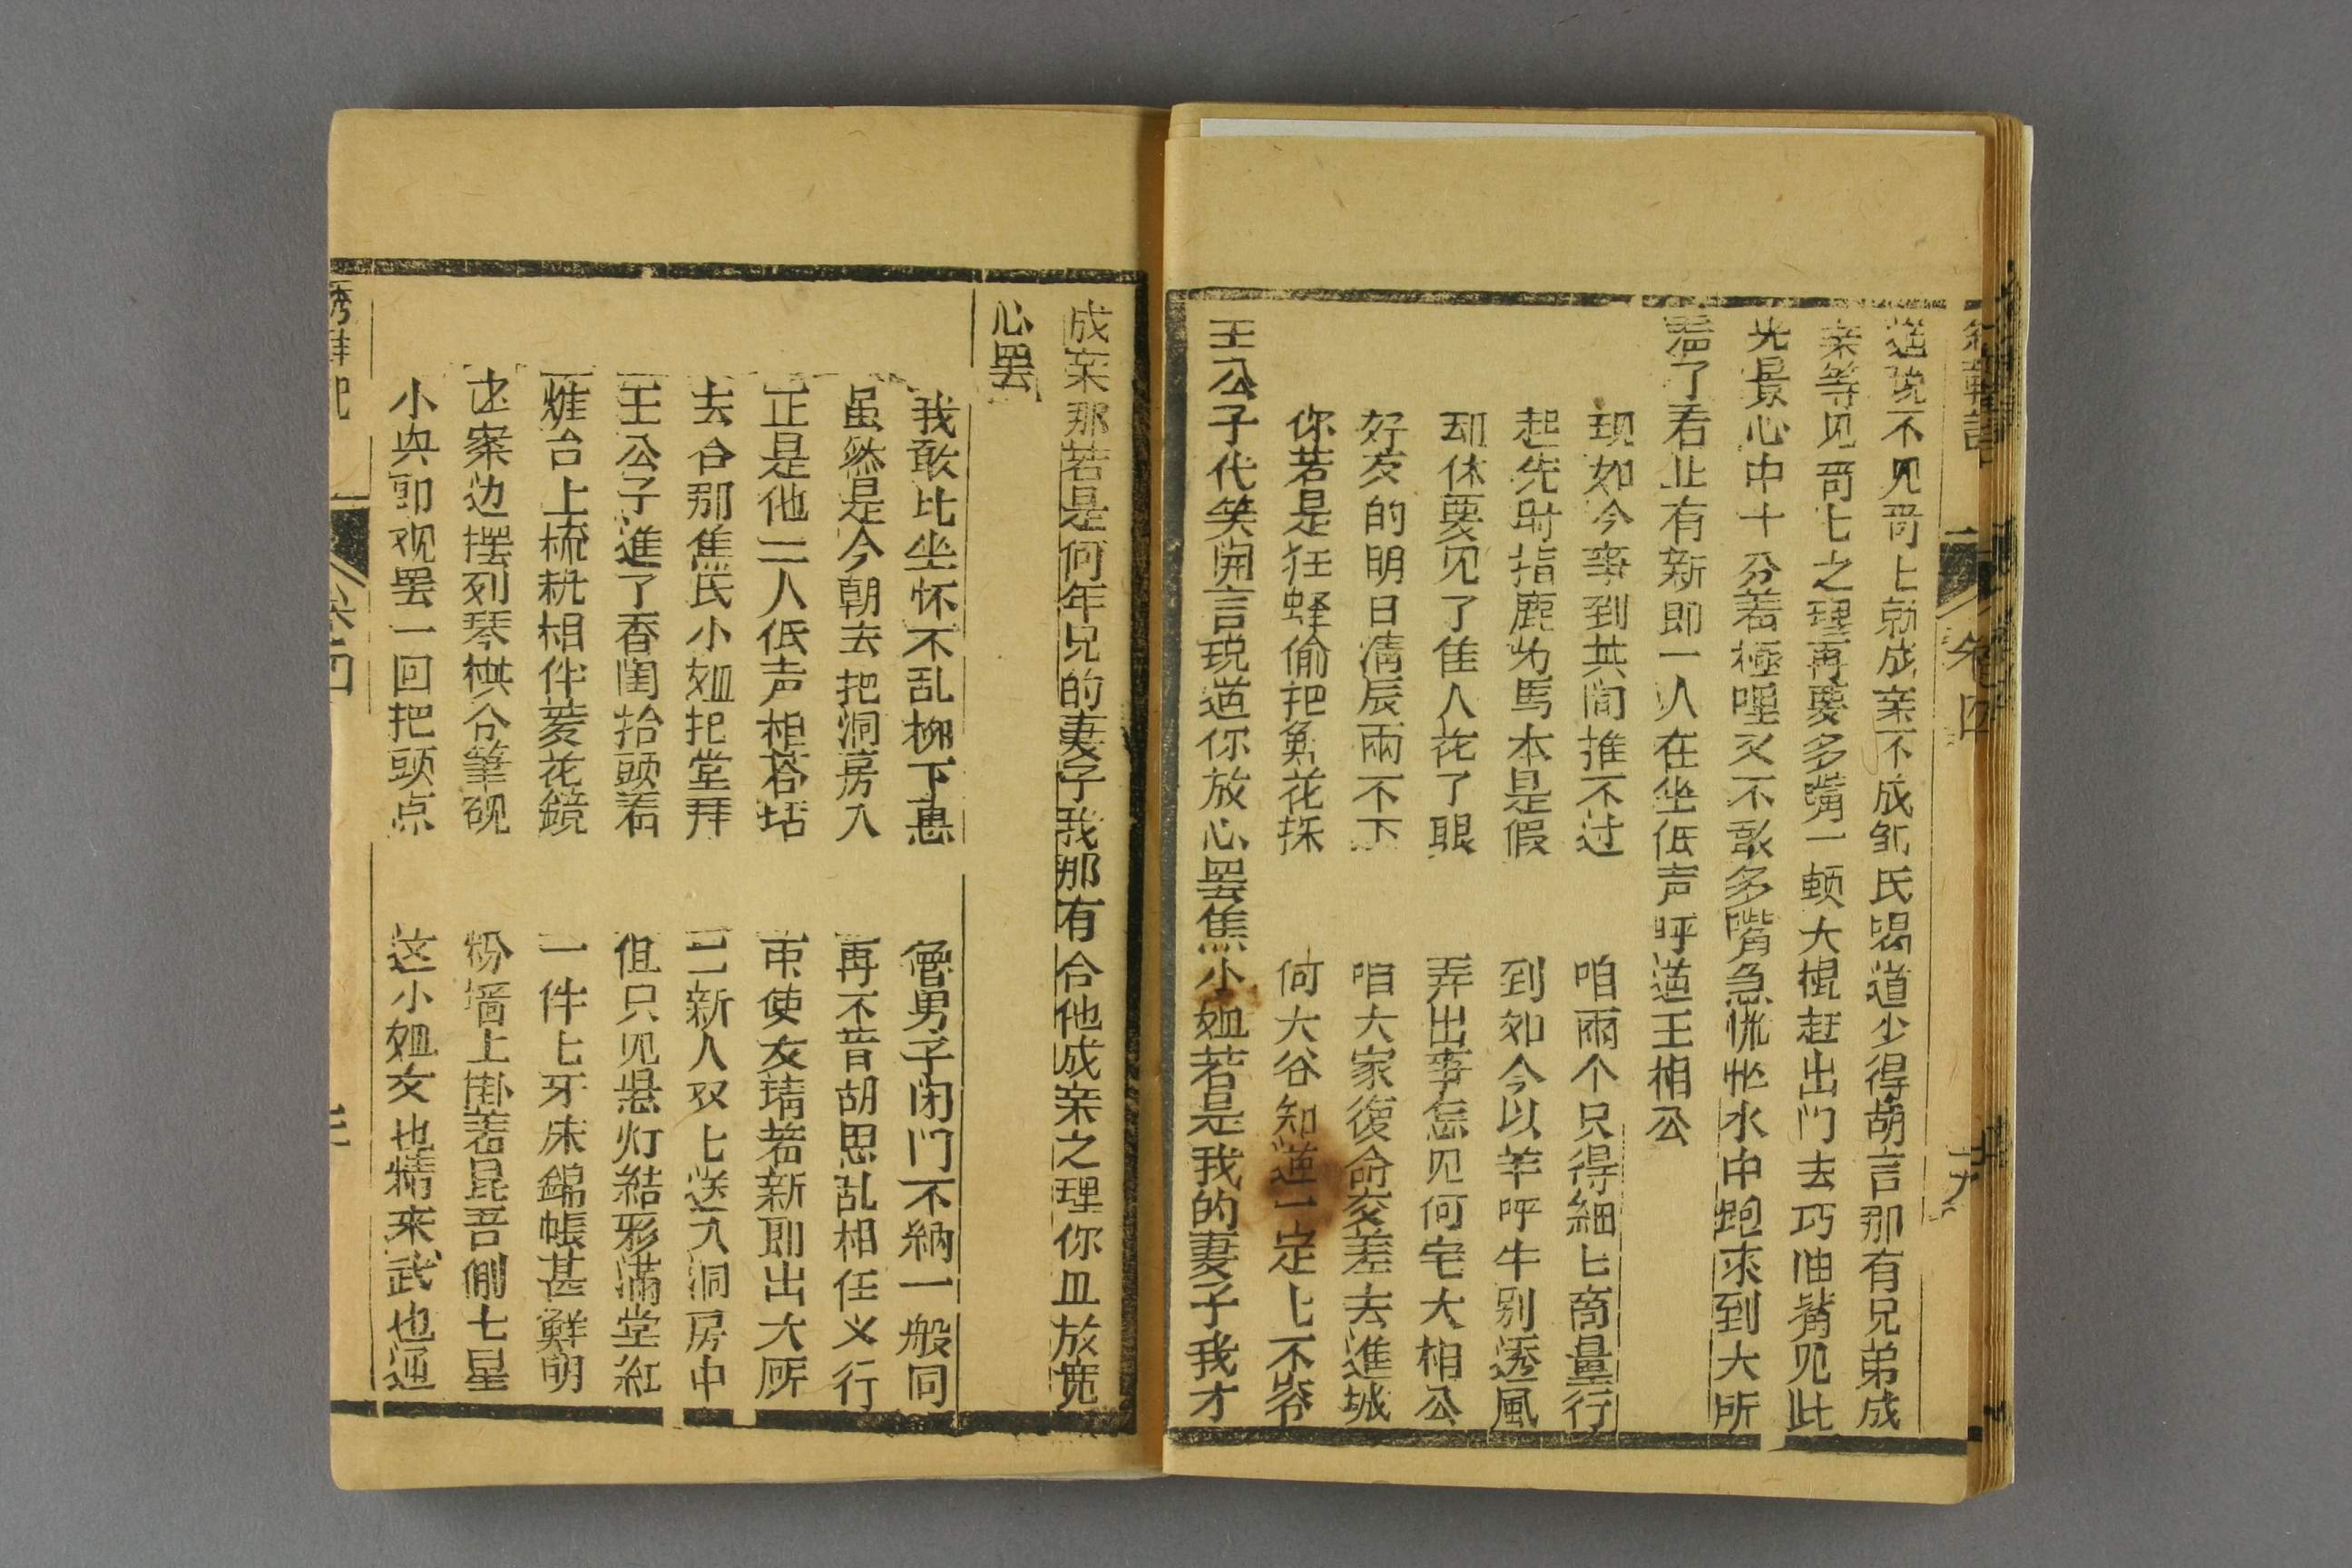 道说不见哥匕勍成亲不成邹氏喝道少得胡言那有兄弟成
亲等见哥七之理再要多嘴一顿大棍赶出门去巧油嘴见此
光景心中十分着極哩又不敢多嘴急慌忙水中跑來到大所
看了看止有新郎一人在坐低声呼道王相公
现如今事到其间推不过 咱兩个只得細匕商量行
起先时指鹿为馬本是假 到如今以羊呼牛别透風
却休要见了佳人花了眼 弄出事怎见何宅大相公
好友的明日清辰兩不下 咱大家復命交差去進城
你若是狂蜂偷把魚花採 何大谷知道一定匕不爷
王公子代笑開言说道你放心罢焦小姐若是我的妻子我才
成亲那若是何年兄的妻子我那有合他成亲之理你且放寛
心罢
我敢比坐怀不乱柳下惠 魯男子闭门不納一般同
虽然是今朝去把洞房入 再不肯胡思乱相任义行
正是他二人低声相答話 有使友請着新郎出大所
去合那焦氏小姐把堂拜 二新人双匕送入洞房中
王公子進了香閨抬頭看 但只见悬灯結彩满堂紅
粧台上梳粧相伴菱花鏡 一件匕牙床錦帳甚鮮明
也案边摆列琴棋合筆砚 粉墙上掛着昆吾側七星
小央郎观罢一回把頭点 这小姐文也精來武也通
卷四
十九